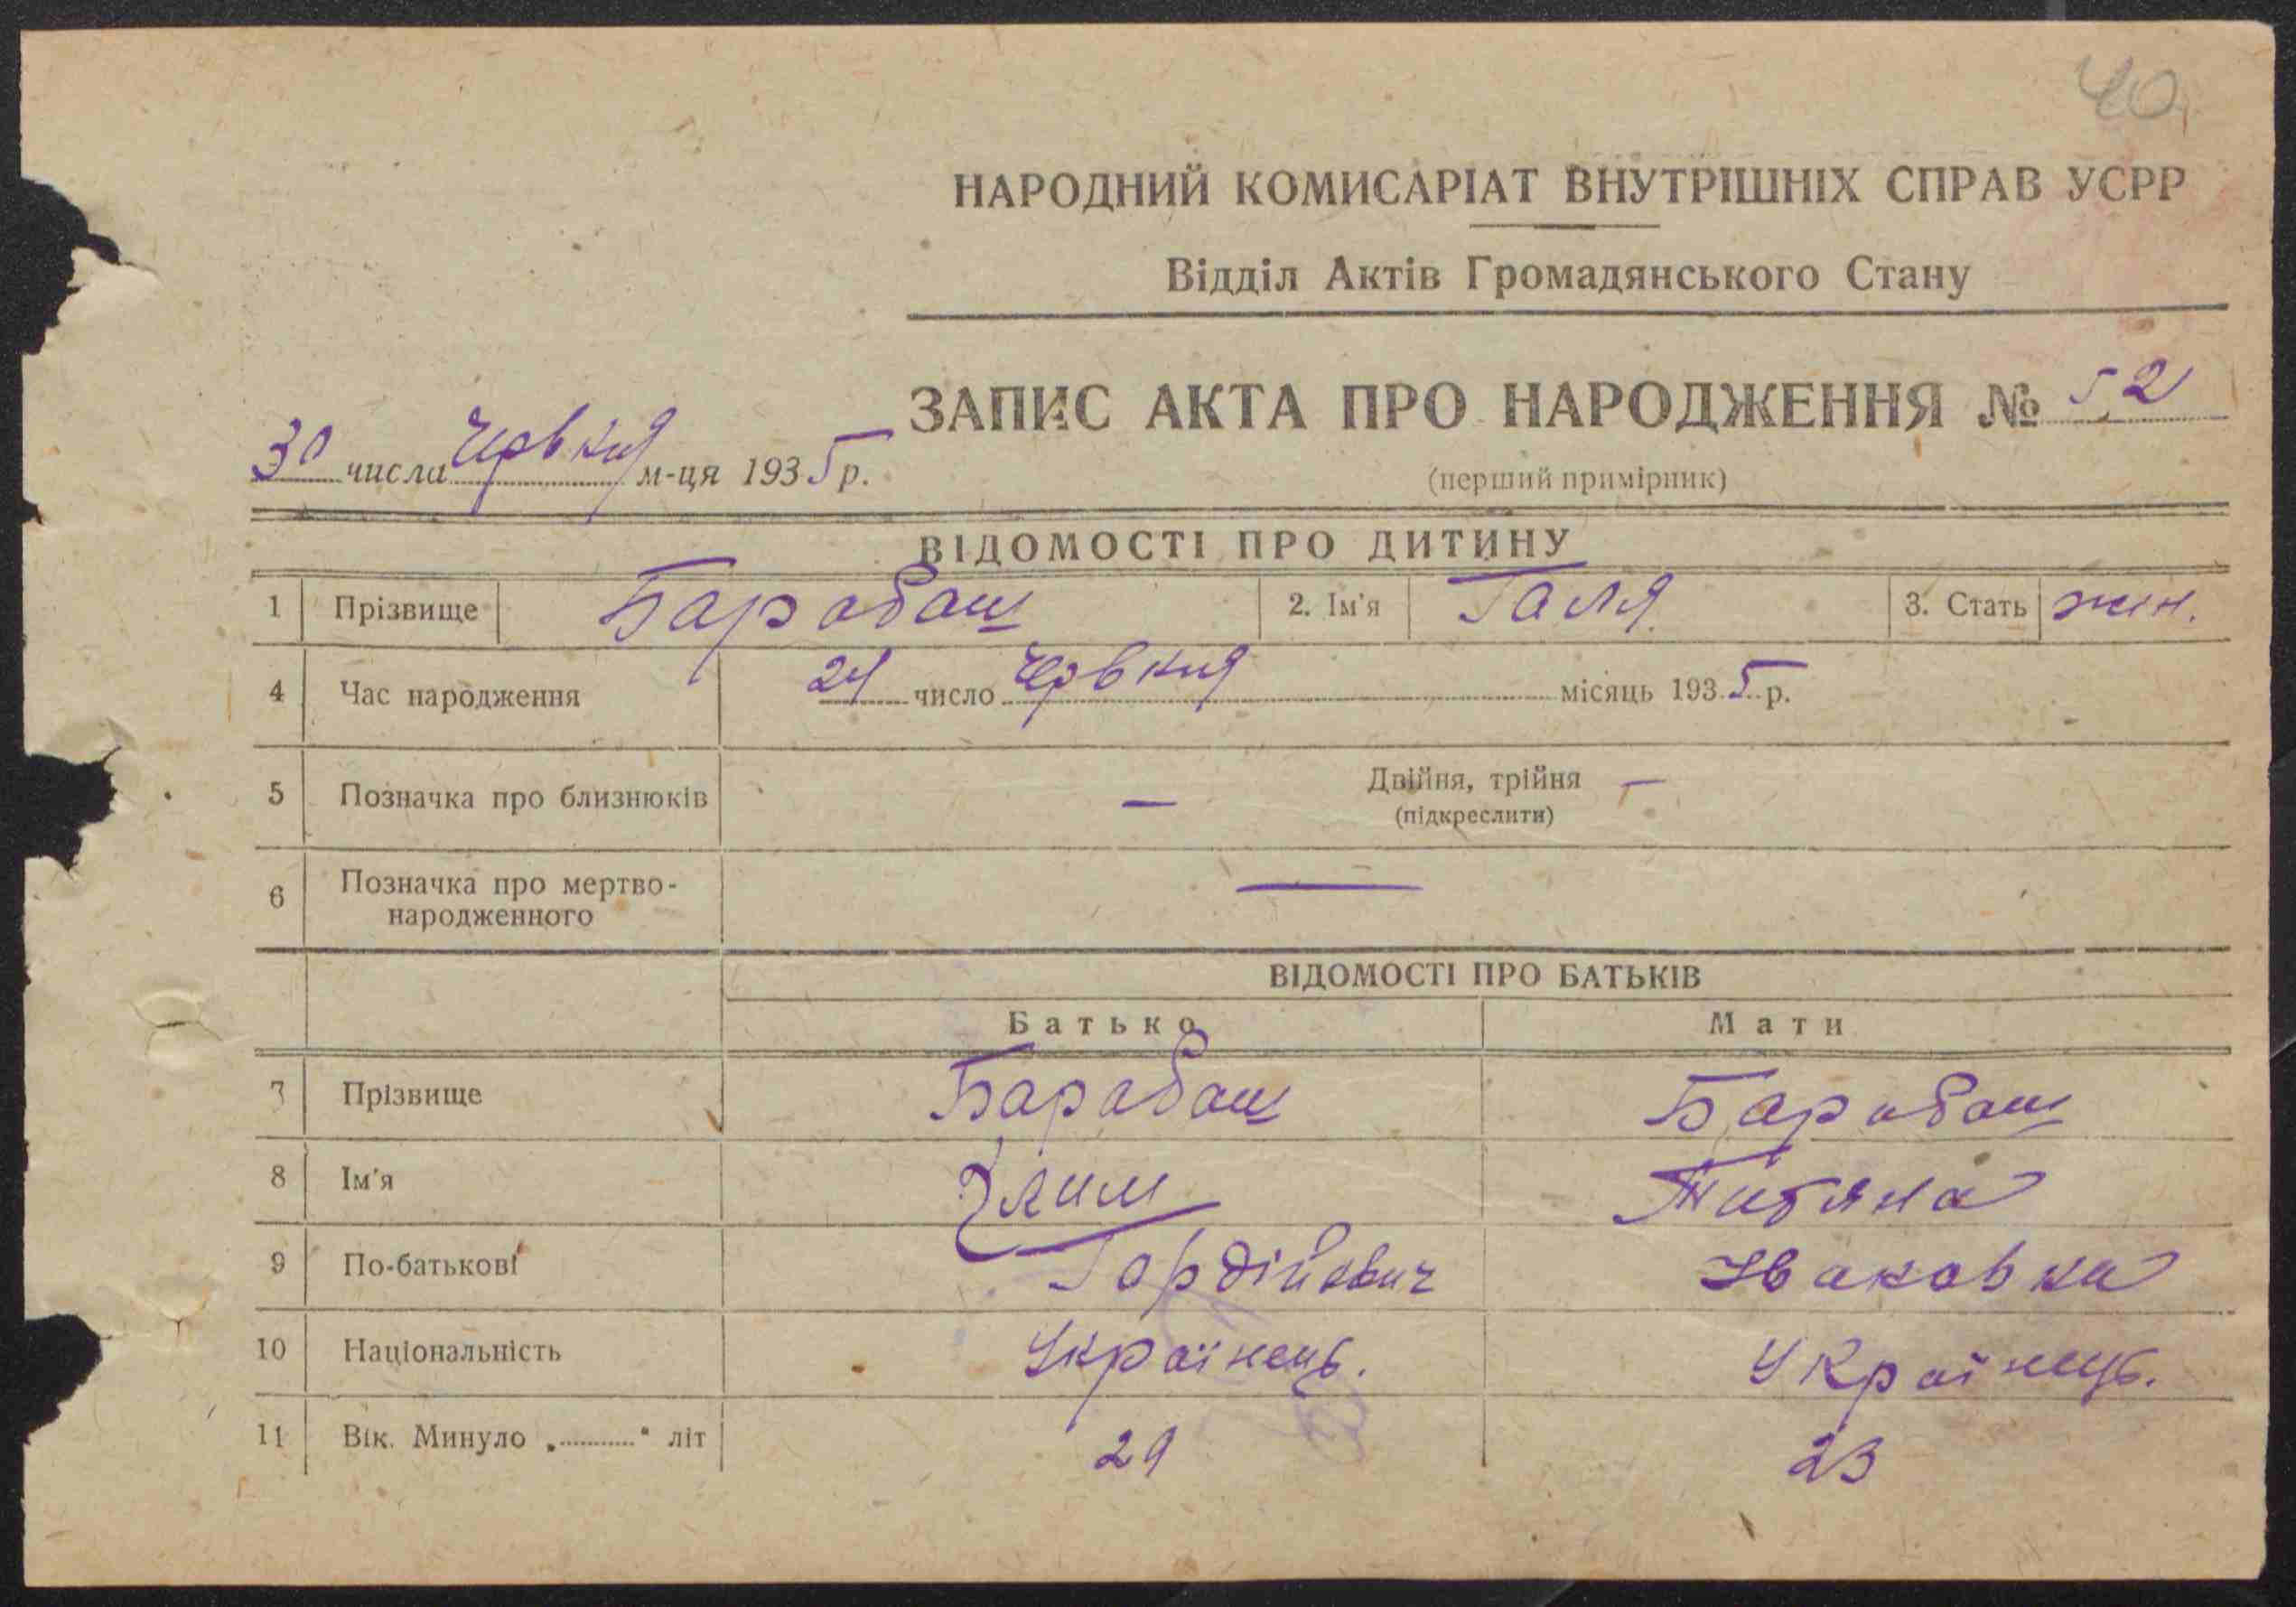 40
НАРОДНИЙ КОМИСАРІАТ ВНУТРІШНІХ СПРАВ УСРР
Відділ Актів Громадянського Стану
ЗАПИС АКТА ПРО НАРОДЖЕННЯ № 52
30 числа Червня м-ця 1935 р.
(перший примірник)
ВІДОМОСТІ ПРО ДИТИНУ
1 Прізвище Барабаш 2. Ім'я Галя 3. Стать жін.
4 Час народження 24 число Червня місяць 1935 р.
5 Позначка про близнюків — Двійня, трійня —
(підкреслити)
6 Позначка про мертво-
народженного —
ВІДОМОСТІ ПРО БАТЬКІВ
Батько Мати
7 Прізвище Барабаш Барабаш
8 Ім'я Клим Татяна
9 По-батькові Гордійович
10 Національність Українець. Українець.
11 Вік. Минуло „..........“ літ 29 23